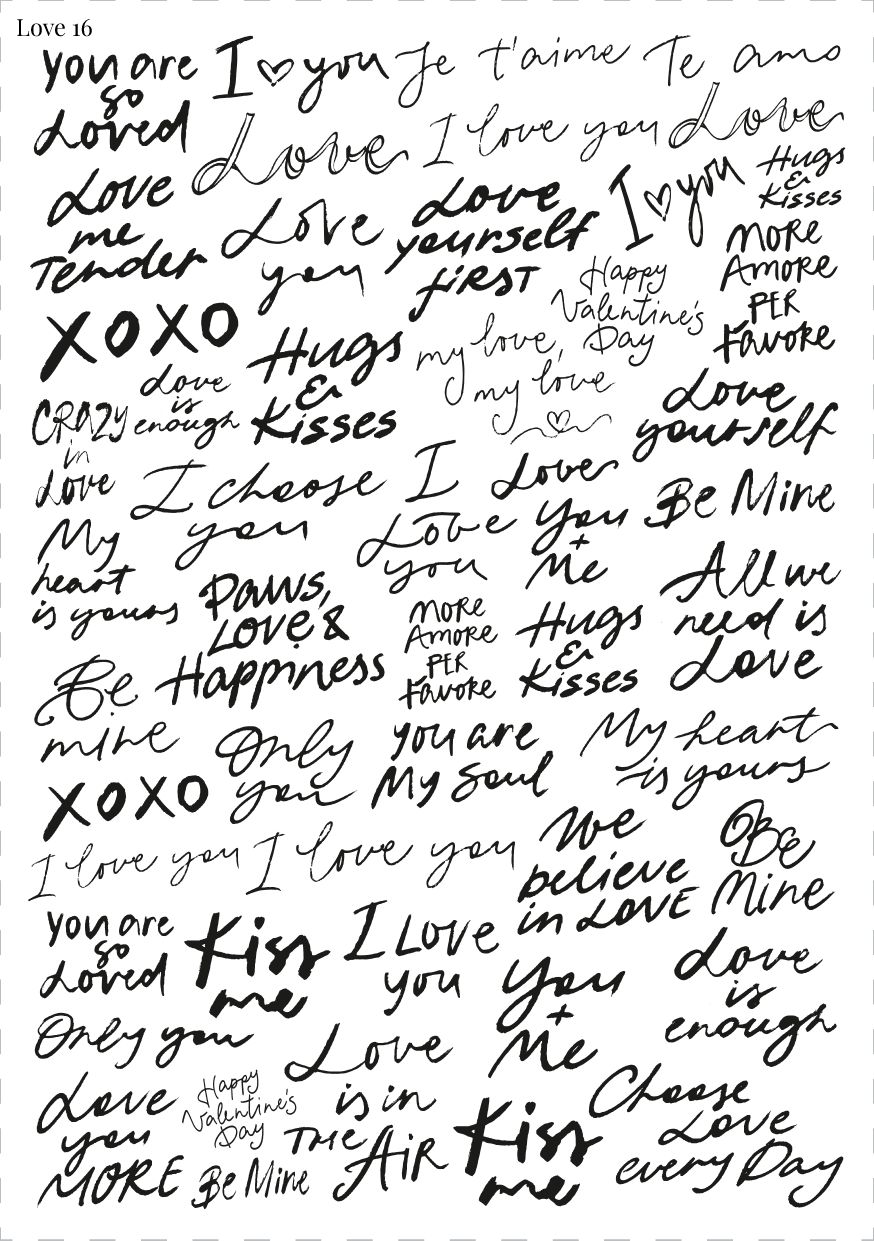 Love 16
you are
so
Loved
I ♡ you
Je t'aime
Te amo
Love
I love you
Love
Love
me
Tender
Love
you
Love
yourself
first
I ♡ you
Hugs
&
Kisses
MORE
AMORE
PER
Favore
XOXO
Hugs
&
Kisses
Happy
Valentine's
Day
my love,
my love
CRAZY
in
Love
Love
is
enough
Love
yourself
I choose
you
I
Love
you
Love
You
+
Me
Be Mine
My
heart
is yours
Paws,
Love &
Happiness
MORE
AMORE
PER
Favore
Hugs
&
Kisses
All we
need is
Love
Be
mine
Only
you
you are
My Soul
My heart
is yours
XOXO
I love you
I love you
We
believe
in LOVE
Be
Mine
you are
so
Loved
Kiss
me
I Love
you
You
+
Me
Love
is
enough
Only you
Love
is in
THE
AiR
Love
you
MORE
Happy
Valentine's
Day
Be Mine
Kiss
me
Choose
Love
every Day